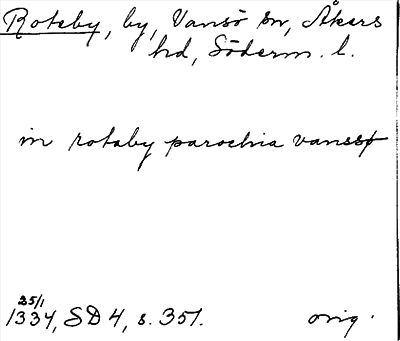 Roteby, by, Vansö sn, Åkers
hd, Söderm. l.
in rotaby parochia vanssø
25/1
1334, SD 4, s. 351. orig.